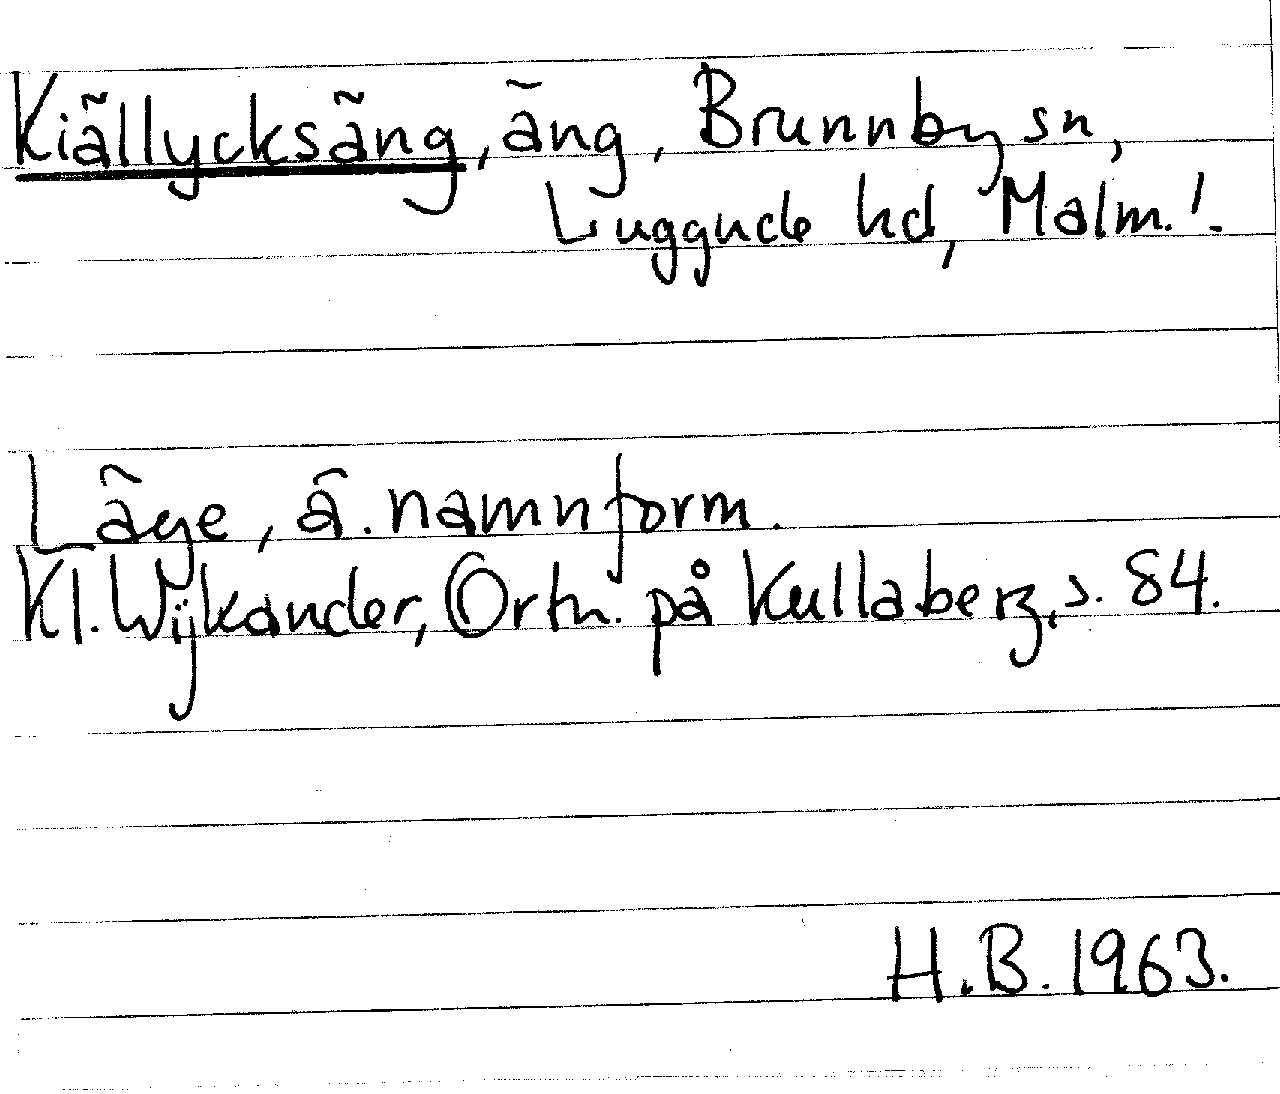 Kiällycksäng, äng, Brunnby sn,
Luggude hd, Malm. l.
Läge, ä. namnform.
Kl. Wijkander, Ortn. på Kullaberg, s. 84.
H.B. 1963.